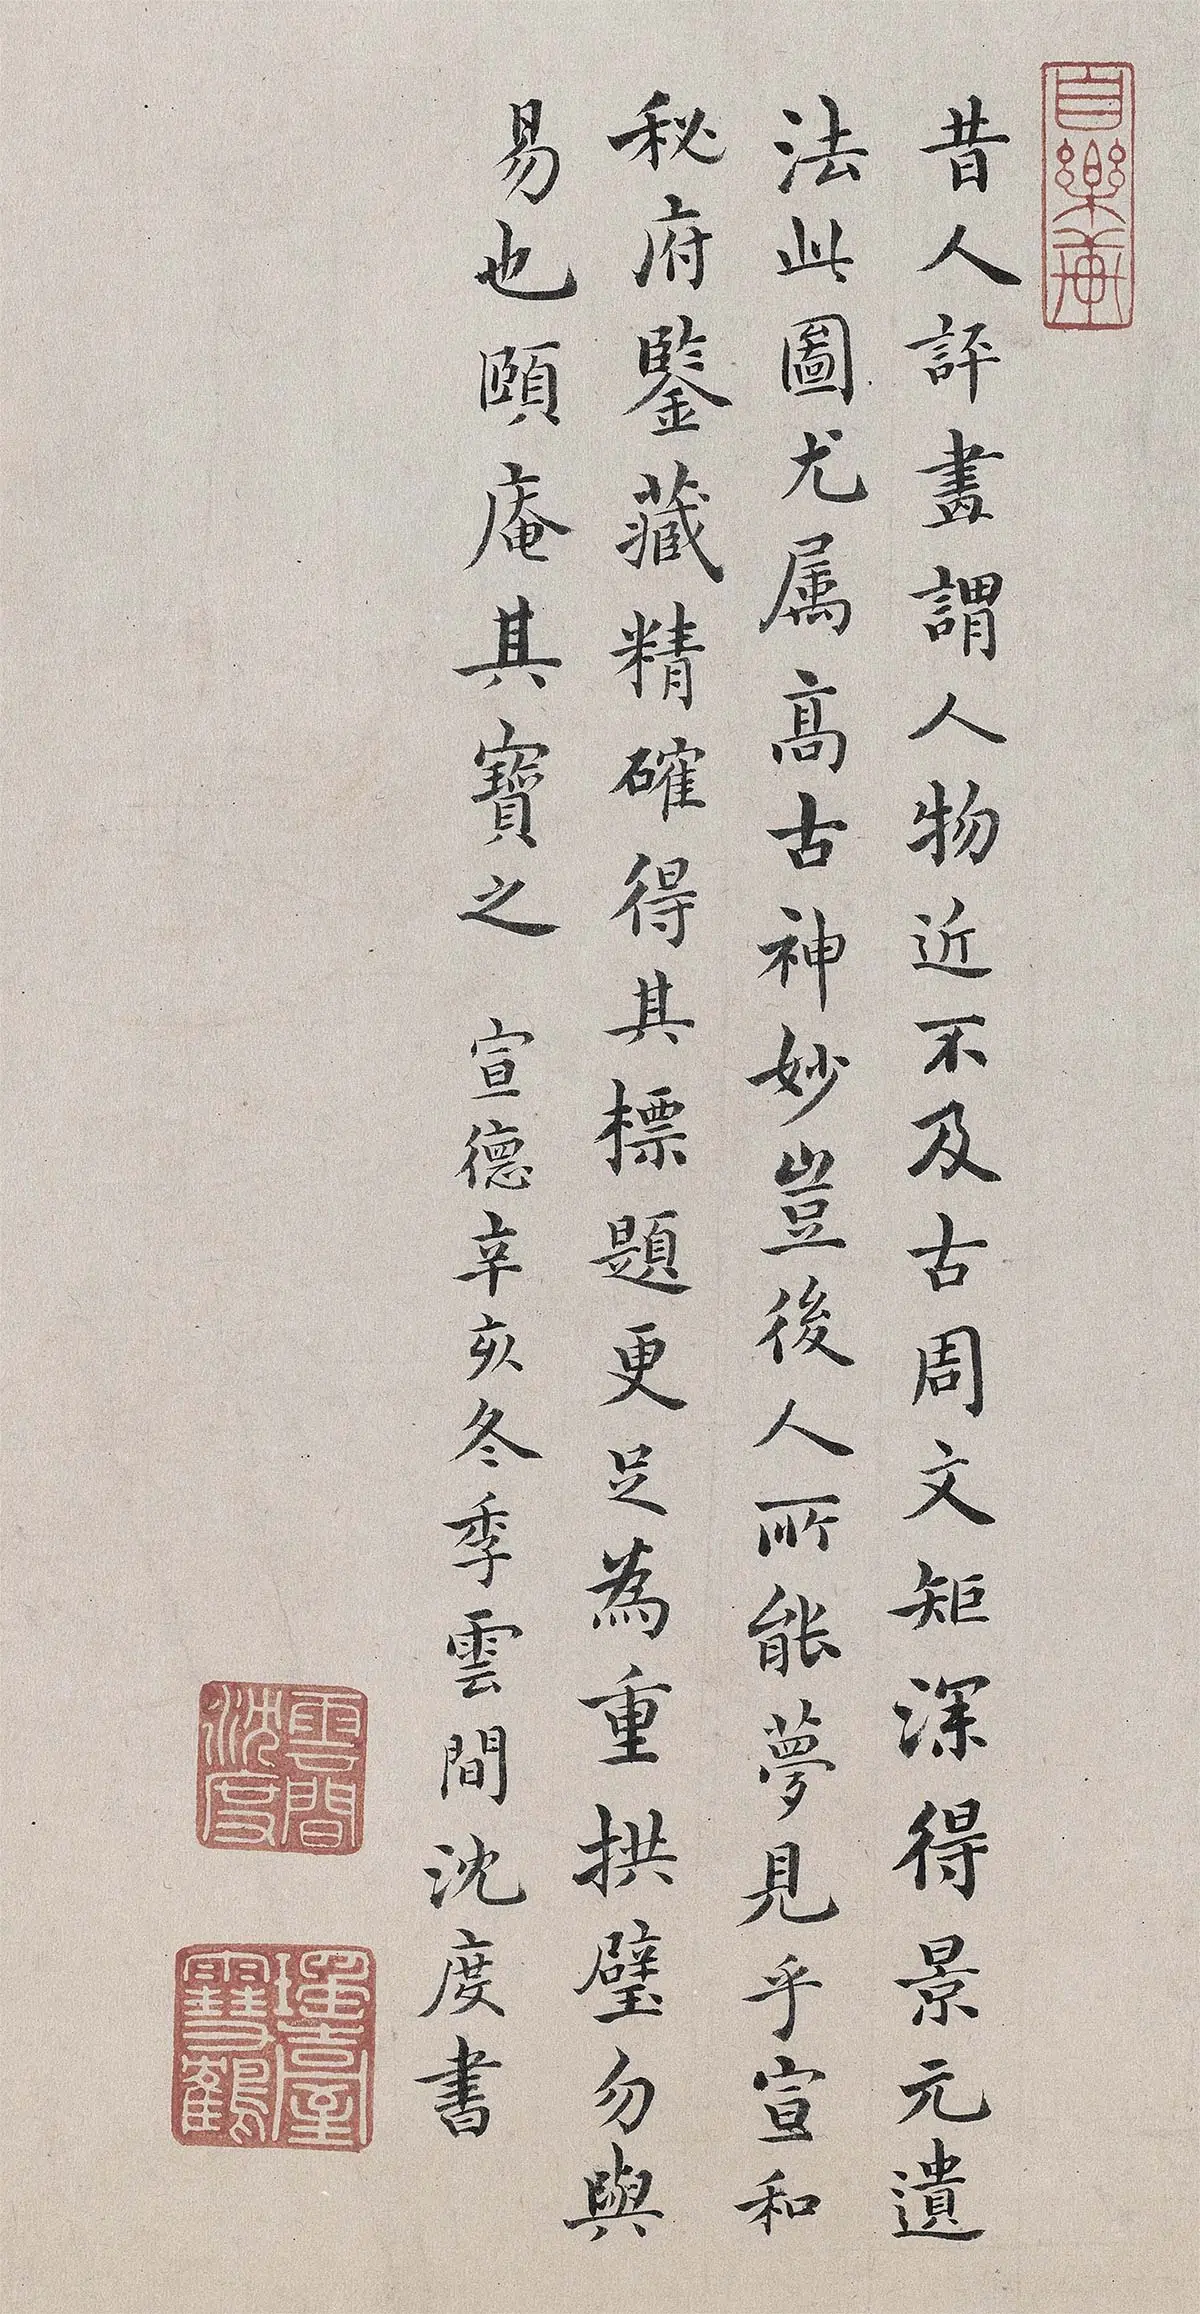 昔人評畫謂人物近不及古周文矩深得景元遺
法此圖尤属高古神妙豈後人所能夢見乎宣和
秘府鑒藏精確得其標題更足為重拱璧勿與
易也頤庵其寶之 宣德辛亥冬季雲間沈度書
自樂
雲間沈度
瑤臺雪鶴